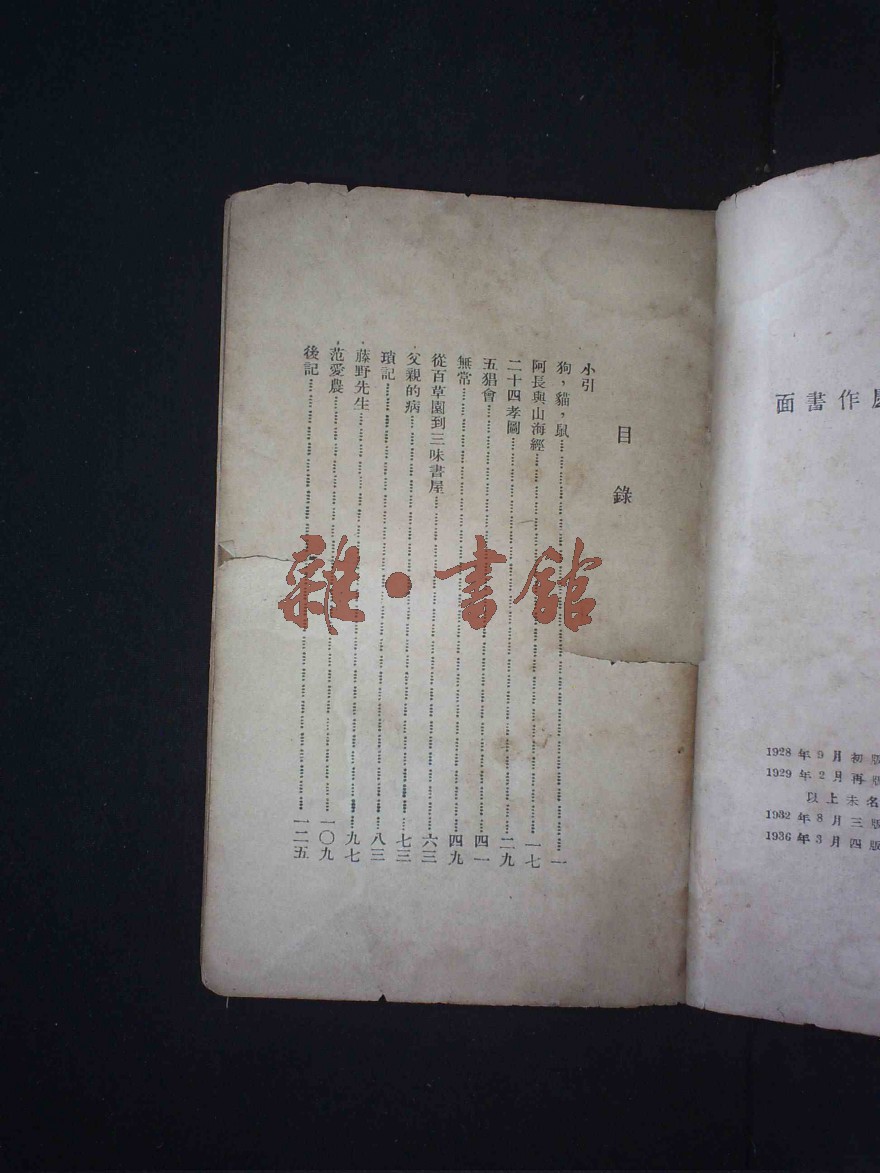 面書作
1928年9月初版
1929年2月再版
以上未名
1932年8月三版
1936年3月四版
目錄
小引
狗，貓，鼠……一
阿長與山海經……一七
二十四孝圖……二九
五猖會……四一
無常……四九
從百草園到三味書屋……六三
父親的病……七三
瑣記……八三
藤野先生……九七
范愛農……一〇九
後記……一二五
雜·書館